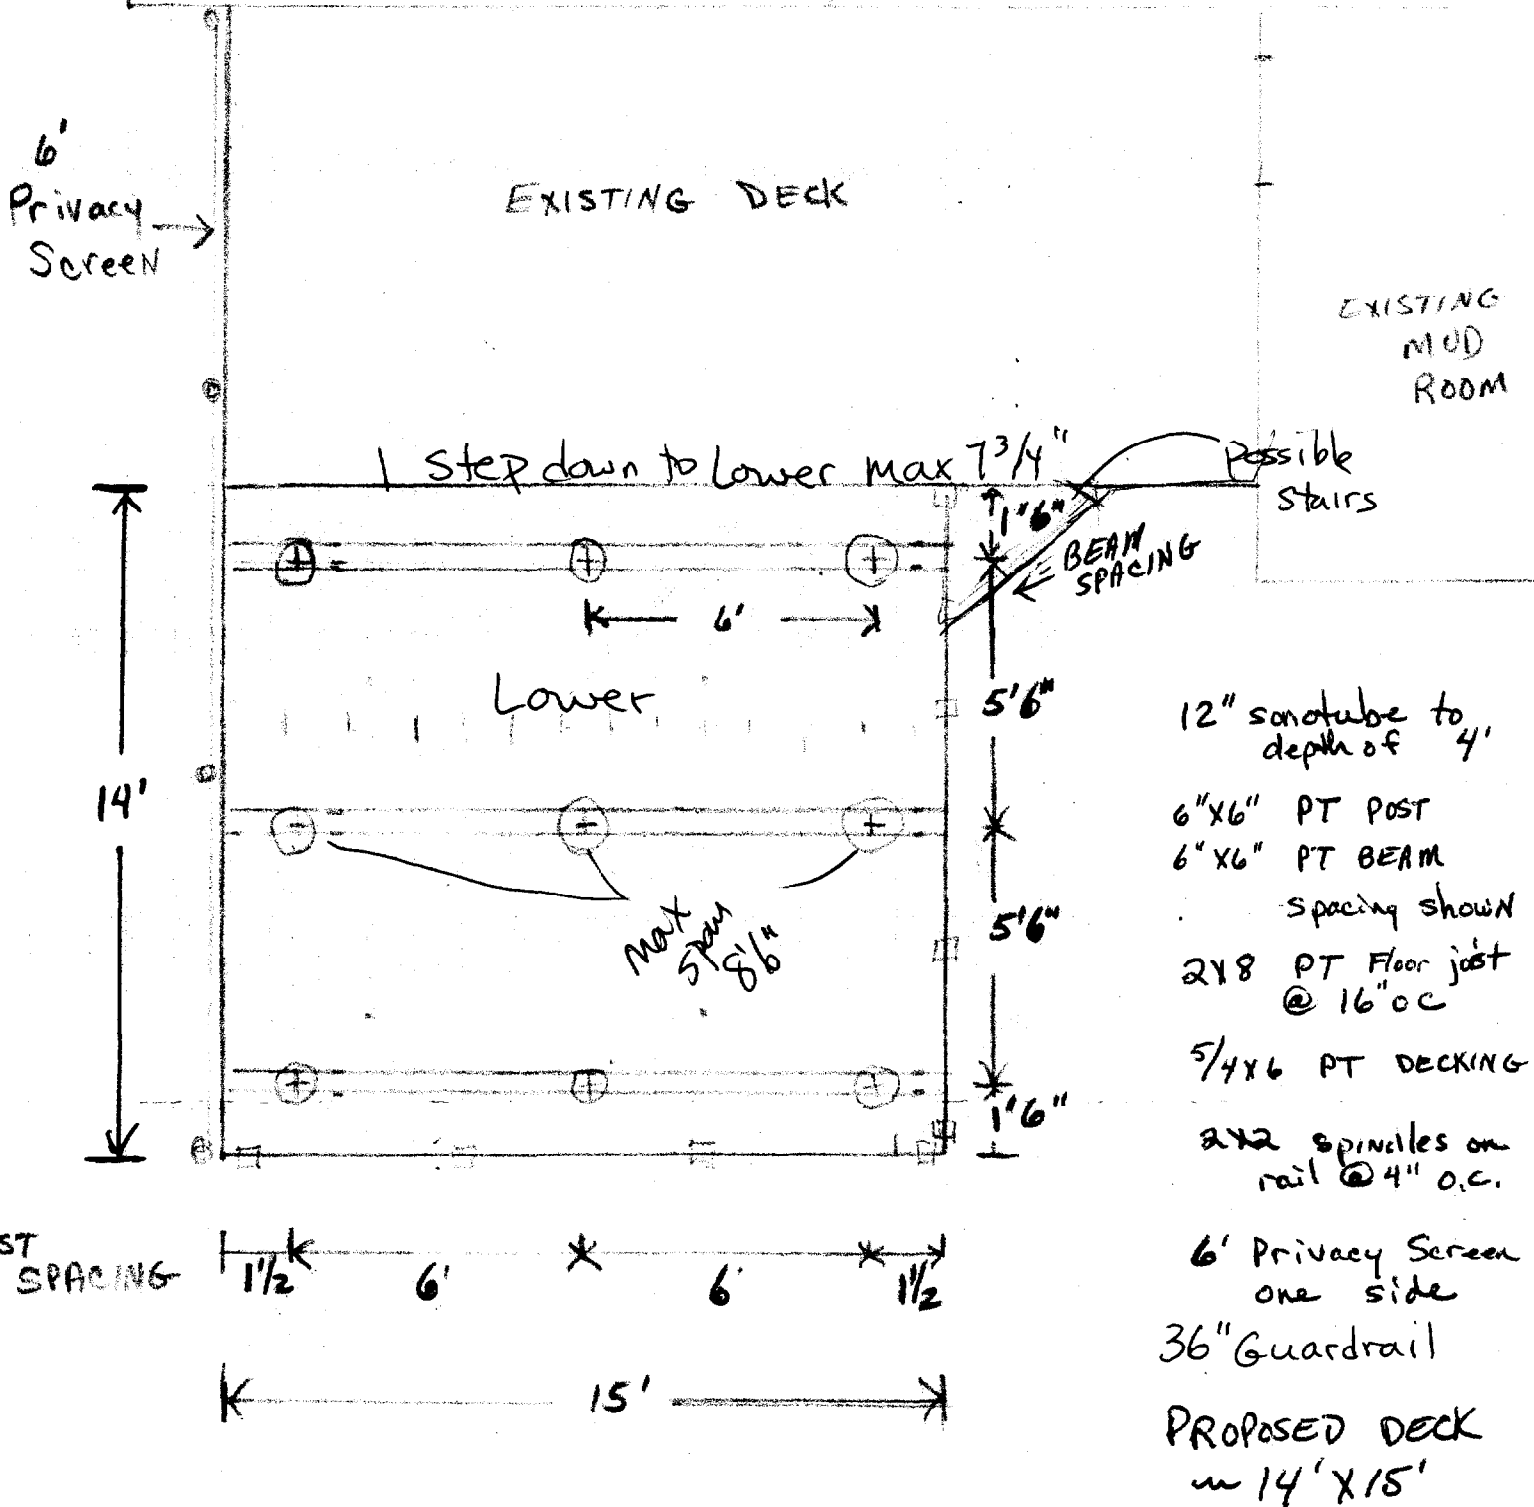 6'
Privacy
Screen
EXISTING DECK
EXISTING
MUD
ROOM
1 Step down to Lower max 7 3/4"
possible
stairs
1'6"
BEAM
SPACING
6'
Lower
5'6"
14'
max
span
8'6"
5'6"
1'6"
12" sonotube to
depth of 4'
6"X6" PT POST
6"X6" PT BEAM
Spacing shown
2X8 PT Floor joist
@ 16" OC
5/4X6 PT DECKING
2X2 spindles on
rail @ 4" O.C.
6' Privacy Screen
one side
36" Guardrail
PROPOSED DECK
14' X 15'
ST
SPACING
1 1/2
6'
6'
1 1/2
15'